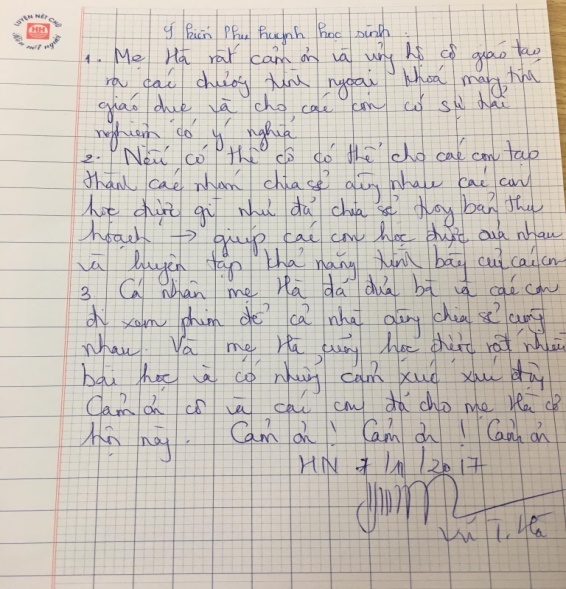 LUYỆN NÉT CHỮ
HN
Rèn nết người
Ý kiến phụ huynh học sinh.
1. Mẹ Hà rất cảm ơn và ủng hộ cô giáo tạo
ra các chương trình ngoại khoá mang tính
giáo dục và cho các con có sự trải
nghiệm có ý nghĩa
2. Nếu có thể cô có thể cho các con tạo
thành các nhóm chia sẻ cùng nhau các con
học được gì như đã chia sẻ trong bản thu
hoạch → giúp các con học được qua nhau
và luyện tập khả năng trình bày của các con
3 Cá nhân mẹ Hà đã đưa bà và các con
đi xem phim để cả nhà cùng chia sẻ cùng
nhau. Và mẹ Hà cũng học được rất nhiều
bài học và có những cảm xúc xúc động
Cảm ơn cô và các con đã cho mẹ Hà cơ
hội này. Cảm ơn! Cảm ơn! Cảm ơn
HN 7/11/2017
Vũ T. Hà